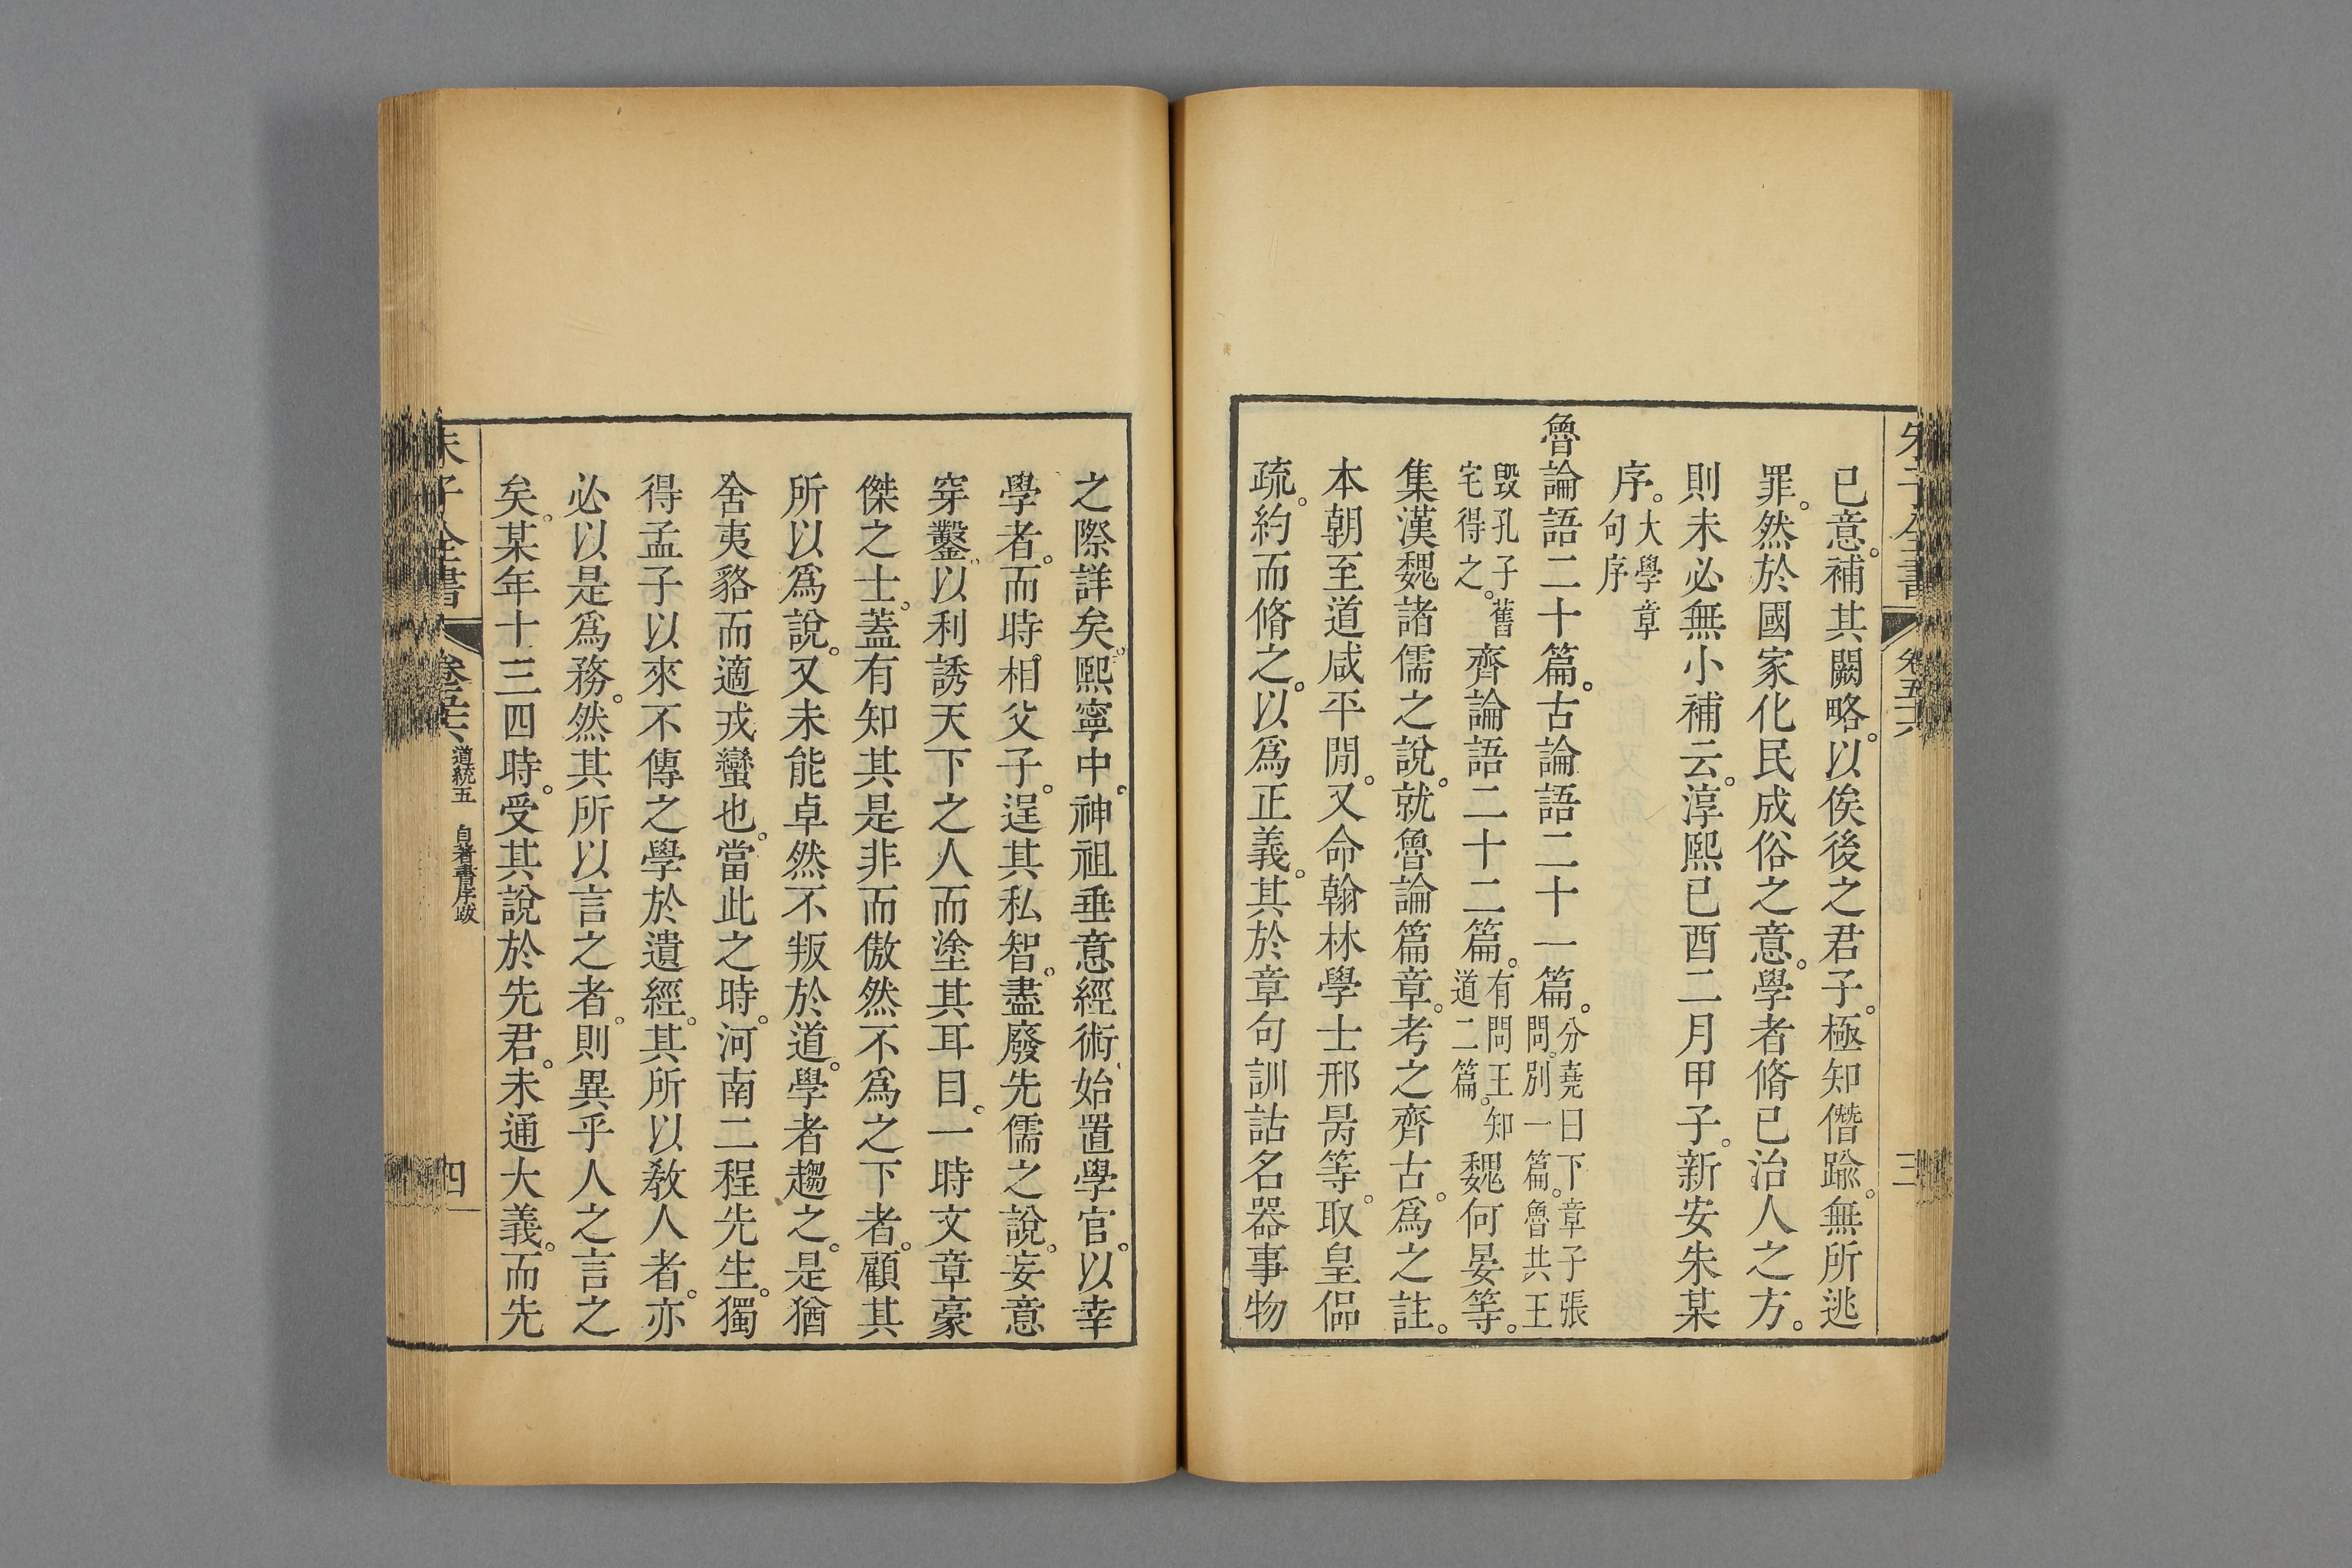 朱子全書 卷五十六 三
已意。補其闕略。以俟後之君子。極知僭踰。無所逃
罪。然於國家化民成俗之意。學者脩已治人之方。
則未必無小補云。淳熙已酉二月甲子。新安朱某
序。大學章句序
魯論語二十篇。古論語二十一篇。分堯曰下章子張問。別一篇。魯共王
毀孔子舊宅得之。齊論語二十二篇。有問王知道二篇。魏何晏等。
集漢魏諸儒之說。就魯論篇章。考之齊古。爲之註。
本朝至道咸平閒。又命翰林學士邢昺等。取皇侃
疏。約而脩之。以爲正義。其於章句訓詁名器事物
之際詳矣。熙寧中。神祖垂意經術。始置學官。以幸
學者。而時相父子。逞其私智。盡廢先儒之說。妄意
穿鑿。以利誘天下之人而塗其耳目。一時文章豪
傑之士。蓋有知其是非而傲然不爲之下者。顧其
所以爲說。又未能卓然不叛於道。學者趨之。是猶
舍夷貉而適戎蠻也。當此之時。河南二程先生。獨
得孟子以來不傳之學於遺經。其所以敎人者。亦
必以是爲務。然其所以言之者。則異乎人之言之
矣。某年十三四時。受其說於先君。未通大義。而先
朱子全書 卷五十六 道統五 自著書序跋 四